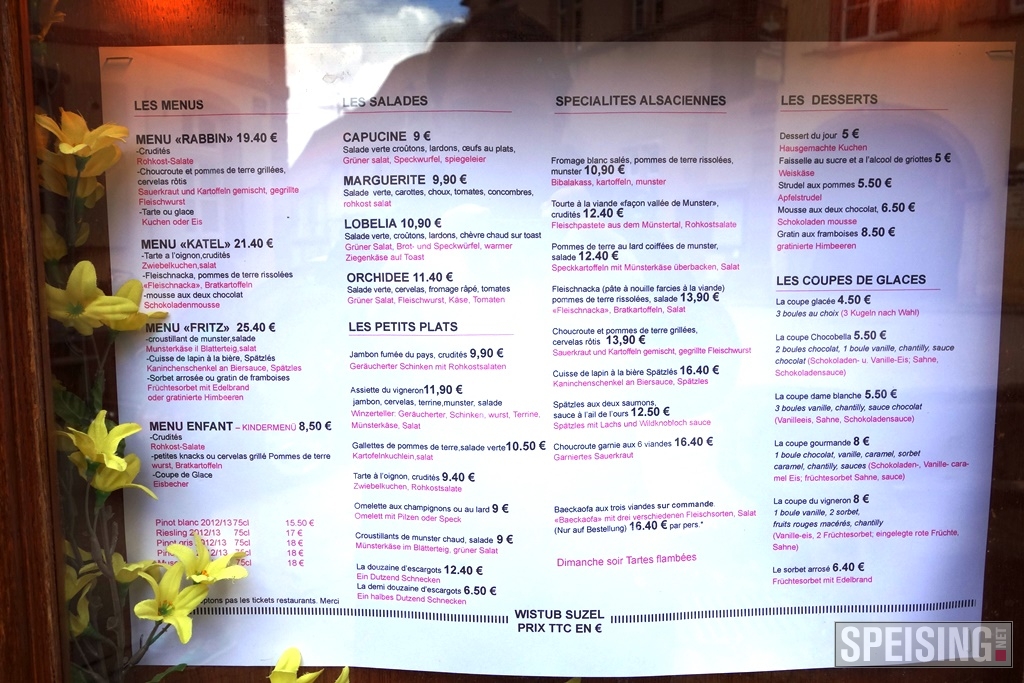 LES MENUS
MENU «RABBIN» 19.40 €
-Crudités
Rohkost-Salate
-Choucroute et pommes de terre grillées,
cervelas rôtis
Sauerkraut und Kartoffeln gemischt, gegrillte
Fleischwurst
-Tarte ou glace
Kuchen oder Eis
MENU «KATEL» 21.40 €
-Tarte a l'oignon,crudités
Zwiebelkuchen,salat
-Fleischnacka, pommes de terre rissolées
«Fleischnacka», Bratkartoffeln
-mousse aux deux chocolat
Schokoladenmousse
MENU «FRITZ» 25.40 €
-croustillant de munster,salade
Munsterkäse il Blatterteig,salat
-Cuisse de lapin à la bière, Spätzlés
Kaninchenschenkel an Biersauce, Spätzles
-Sorbet arrosée ou gratin de framboises
Früchtesorbet mit Edelbrand
oder gratinierte Himbeeren
MENU ENFANT – KINDERMENÜ 8,50 €
-Crudités
Rohkost-Salate
-petites knacks ou cervelas grillé Pommes de terre
wurst, Bratkartoffeln
-Coupe de Glace
Eisbecher
Pinot blanc 2012/13 75cl 15.50 €
Riesling 2012/13 75cl 17 €
Pinot gris 2012/13 75cl 18 €
75cl 18 €
18 €
pas les tickets restaurants. Merci
LES SALADES
CAPUCINE 9 €
Salade verte croûtons, lardons, œufs au plats,
Grüner salat, Speckwurfel, spiegeleier
MARGUERITE 9,90 €
Salade verte, carottes, choux, tomates, concombres,
rohkost salat
LOBELIA 10,90 €
Salade verte, croûtons, lardons, chèvre chaud sur toast
Grüner Salat, Brot- und Speckwürfel, warmer
Ziegenkäse auf Toast
ORCHIDEE 11.40 €
Salade verte, cervelas, fromage râpé, tomates
Grüner Salat, Fleischwurst, Käse, Tomaten
LES PETITS PLATS
Jambon fumée du pays, crudités 9,90 €
Geräucherter Schinken mit Rohkostsalaten
Assiette du vigneron 11,90 €
jambon, cervelas, terrine,munster, salade
Winzerteller: Geräucherter, Schinken, wurst, Terrine,
Münsterkäse, Salat
Gallettes de pommes de terre,salade verte 10.50 €
Kartofelnkuchlein,salat
Tarte à l'oignon, crudités 9.40 €
Zwiebelkuchen, Rohkostsalate
Omelette aux champignons ou au lard 9 €
Omelett mit Pilzen oder Speck
Croustillants de munster chaud, salade 9 €
Münsterkäse im Blätterteig, grüner Salat
La douzaine d'escargots 12.40 €
Ein Dutzend Schnecken
La demi douzaine d'escargots 6.50 €
Ein halbes Dutzend Schnecken
SPECIALITES ALSACIENNES
Fromage blanc salés, pommes de terre rissolées,
munster 10,90 €
Bibalakass, kartoffeln, munster
Tourte à la viande «façon vallée de Munster»,
crudités 12.40 €
Fleischpastete aus dem Münstertal, Rohkostsalate
Pommes de terre au lard coiffées de munster,
salade 12.40 €
Speckkartoffeln mit Münsterkäse überbacken, Salat
Fleischnacka (pâte à nouille farcies à la viande)
pommes de terre rissolées, salade 13,90 €
«Fleischnacka», Bratkartoffeln, Salat
Choucroute et pommes de terre grillées,
cervelas rôtis 13,90 €
Sauerkraut und Kartoffeln gemischt, gegrillte Fleischwurst
Cuisse de lapin à la bière Spätzlés 16.40 €
Kaninchenschenkel an Biersauce, Spätzles
Spätzles aux deux saumons,
sauce à l'ail de l'ours 12.50 €
Spätzles mit Lachs und Wildknobloch sauce
Choucroute garnie aux 6 viandes 16.40 €
Garniertes Sauerkraut
Baeckaofa aux trois viandes sur commande.
«Baeckaofa» mit drei verschiedenen Fleischsorten, Salat
(Nur auf Bestellung) 16.40 € par pers.*
Dimanche soir Tartes flambées
LES DESSERTS
Dessert du jour 5 €
Hausgemachte Kuchen
Faisselle au sucre et a l'alcool de griottes 5 €
Weiskäse
Strudel aux pommes 5.50 €
Apfelstrudel
Mousse aux deux chocolat, 6.50 €
Schokoladen mousse
Gratin aux framboises 8.50 €
gratinierte Himbeeren
LES COUPES DE GLACES
La coupe glacée 4.50 €
3 boules au choix (3 Kugeln nach Wahl)
La coupe Chocobella 5.50 €
2 boules chocolat, 1 boule vanille, chantilly, sauce
chocolat (Schokoladen- u. Vanille-Eis; Sahne,
Schokoladensauce)
La coupe dame blanche 5.50 €
3 boules vanille, chantilly, sauce chocolat
(Vanilleeis, Sahne, Schokoladensauce)
La coupe gourmande 8 €
1 boule chocolat, vanille, caramel, sorbet
caramel, chantilly, sauces (Schokoladen-, Vanille- cara-
mel Eis; früchtesorbet Sahne, sauce)
La coupe du vigneron 8 €
1 boule vanille, 2 sorbet,
fruits rouges macérés, chantilly
(Vanille-eis, 2 Früchtesorbet; eingelegte rote Früchte,
Sahne)
Le sorbet arrosé 6.40 €
Früchtesorbet mit Edelbrand
WISTUB SUZEL
PRIX TTC EN €
SPEISING.NET